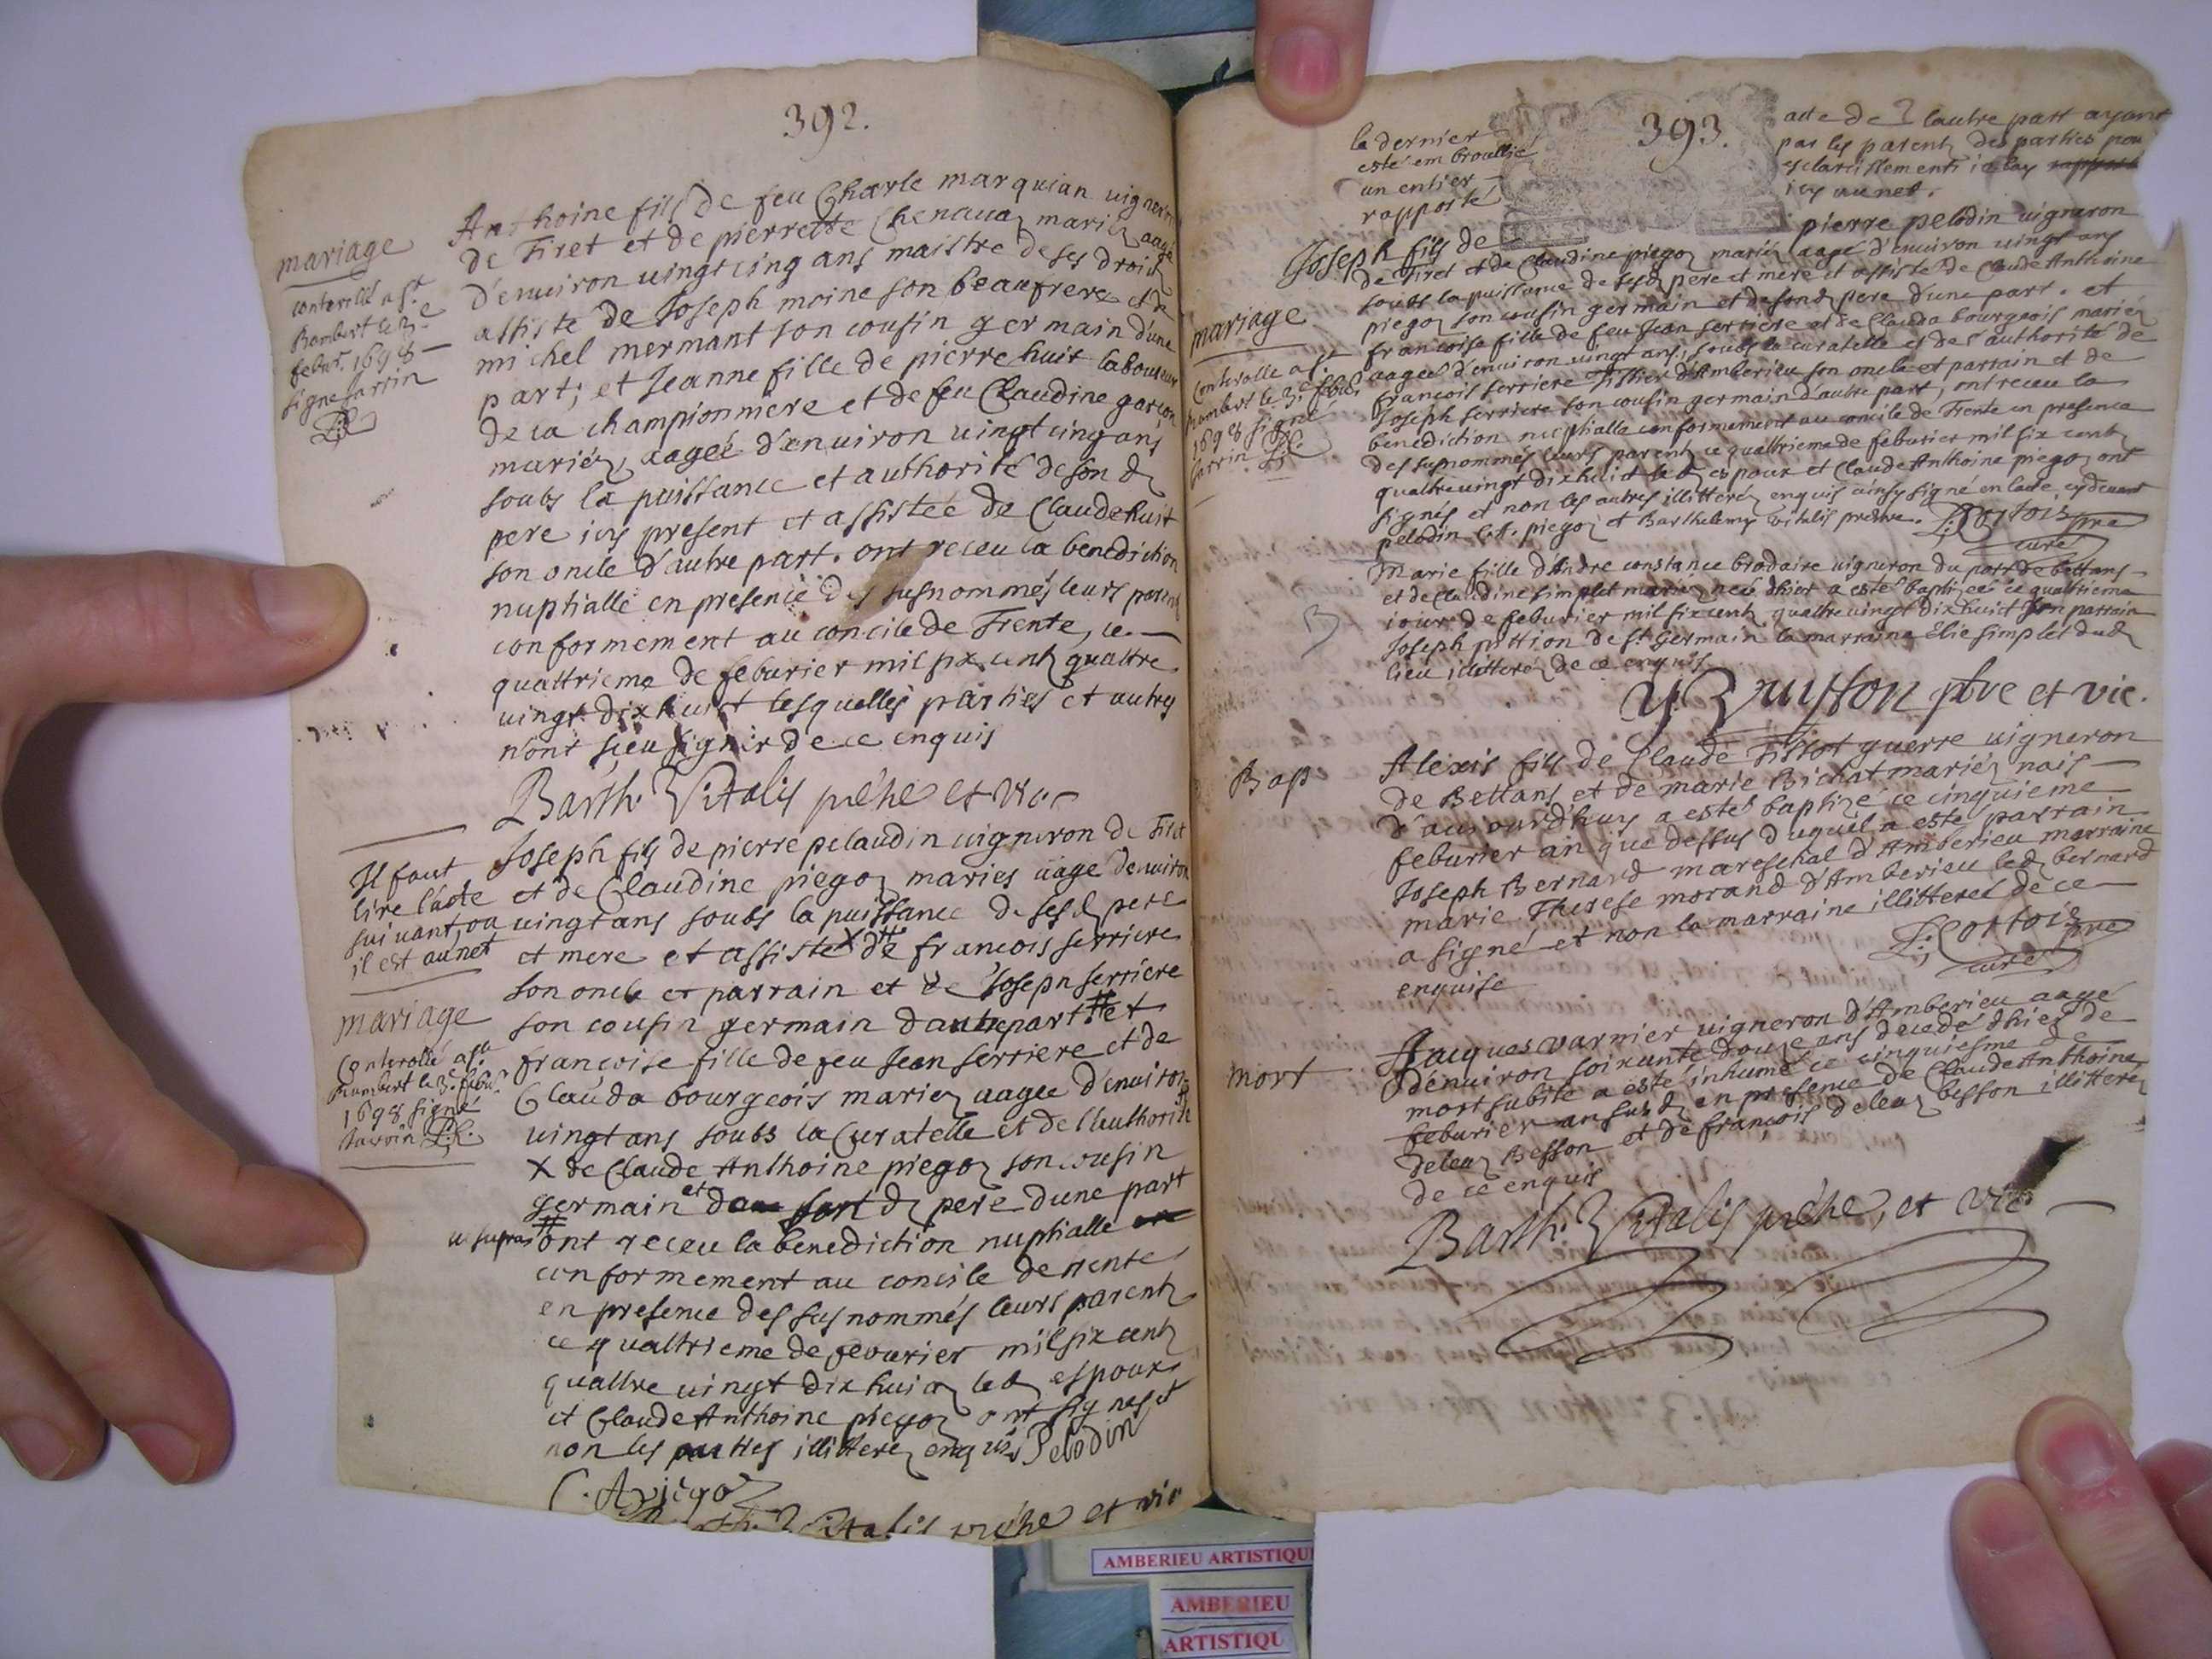 392.
mariage
Conterollé a St
Rambert le 3e
febvr. 1698
signe Jarrin
Anthoine fils de feu Charle marquian vigneron
de Tiret et de pierrette Chenavaz mariez aagé
d'environ vingt cinq ans maistre de ses droits
assiste de Joseph moine son beaufrere et de
michel mermant son cousin germain d'une
part; et Jeanne fille de pierre huit laboureur
de la championniere et de feu Claudine garçon
mariéz, aageé d'environ vingt cinq ans
soubs la puissance et authorité de son d
pere icy present et assisteé de Claude huit
son oncle d'autre part. ont receu la benediction
nuptialle en presence des susnommés leurs parentz
conformement au concile de Trente, ce
quattrieme de feburier mil six centz quattre
vingt dixhuict lesquelles parties et autres
n'ont sceu signer de ce enquis
Barth. Vitalis prêhe et vic
Il faut
lire l'acte
suivant, ou
il est au net
mariage
Conterollé a St
Rambert le 3e febvr
1698 signé
Jarrin
Joseph fils de pierre pelaudin vigneron de Tiret
et de Claudine piegoz maries aagé denviron
vingt ans soubs la puissance de ses d pere
et mere et assiste X de francois serriere
son oncle et parrain et de Joseph serriere
son cousin germain d'autre part # et
francoise fille de feu Jean serriere et de
Clauda bourgeois mariez aagee d'environ
vingt ans soubs la Curatelle et de l'authorité
X de Claude Anthoine piegoz son cousin
germain et de son d pere dune part
ut supra # ont receu la benediction nuptialle
conformement au concile de trente
en presence des susnommés leurs parentz
ce quattrieme de febvrier mil six centz
quattre vingt dix huict led espoux
et Claude Anthoine piegoz ont signes et
non les parties illitterez enquis Pelodin
C. A piego
Barth. Vitalis prêhe et vic
393.
le dernier acte de l'autre part ayant
esté embroullié par les parentz des parties pour
un entier esclarcissement ie l'ay rapporté
rapporté icy au net.
mariage
Conterolle a St
Rambert le 3e febvr
1698 signé
Jarrin
Joseph fils de pierre pelodin vigneron
de Tiret et de Claudine piegoz mariéz aagé d'environ vingt ans
soubs la puissance de sesd pere et mere et assisté de Claude Anthoine
piegoz son cousin germain et de sond pere d'une part. et
francoise fille de feu Jean serriere et de Clauda bourgeois mariéz
aageé d'environ vingt ans, soubs la curatelle et de l'authorité de
francois serriere tissier d'Amberieu son oncle et parrain et de
Joseph serriere son cousin germain d'autre part, ont receu la
benediction nuptialle conformement au concile de Trente en presence
des susnommés leurs parentz ce quattrieme de feburier mil six centz
quattre vingt dixhuict led espoux et Claude Anthoine piegoz ont
signés et non les autres illitteréz enquis ainsy signé en l'acte cy devant
pelodin C. A. piegoz et Barthelemy vitalis prestre. Cortois pre
curé
B
Marie fille d'Andre constance brodaire vigneron du port de bettans
et de Claudine simplet mariéz neé d'hier a esté baptizeé ce quattrieme
iour de feburier mil six centz quattre vingt dix huict son parrain
Joseph pittion de st Germain la marraine Elie simplet dud
lieu illitteréz de ce enquis
ptre et vic.
Bap
Alexis fils de Claude Tissot guerre vigneron
de Bettans et de marie Bichat mariéz nais
d'auiourd'huy a esté baptizé ce cinquieme
feburier an que dessus duquel a esté parrain
Joseph Bernard mareschal d'Amberieu marraine
marie Therese morand d'Amberieu led bernard
a signé et non la marraine illitteree de ce
enquise
Cortois pre
curé
mort
Jacques varnier vigneron d'Amberieu aagé
d'environ soixante douze ans decedé d'hier de
mort subite a esté inhumé ce cinquiesme de
feburier an susd en presence de Claude Anthoine
deleaz Besson et de françois deleaz besson illitteréz
de ce enquis
Barth. Vitalis prêhe, et vic
AMBERIEU ARTISTIQU
AMBERIEU
ARTISTIQU